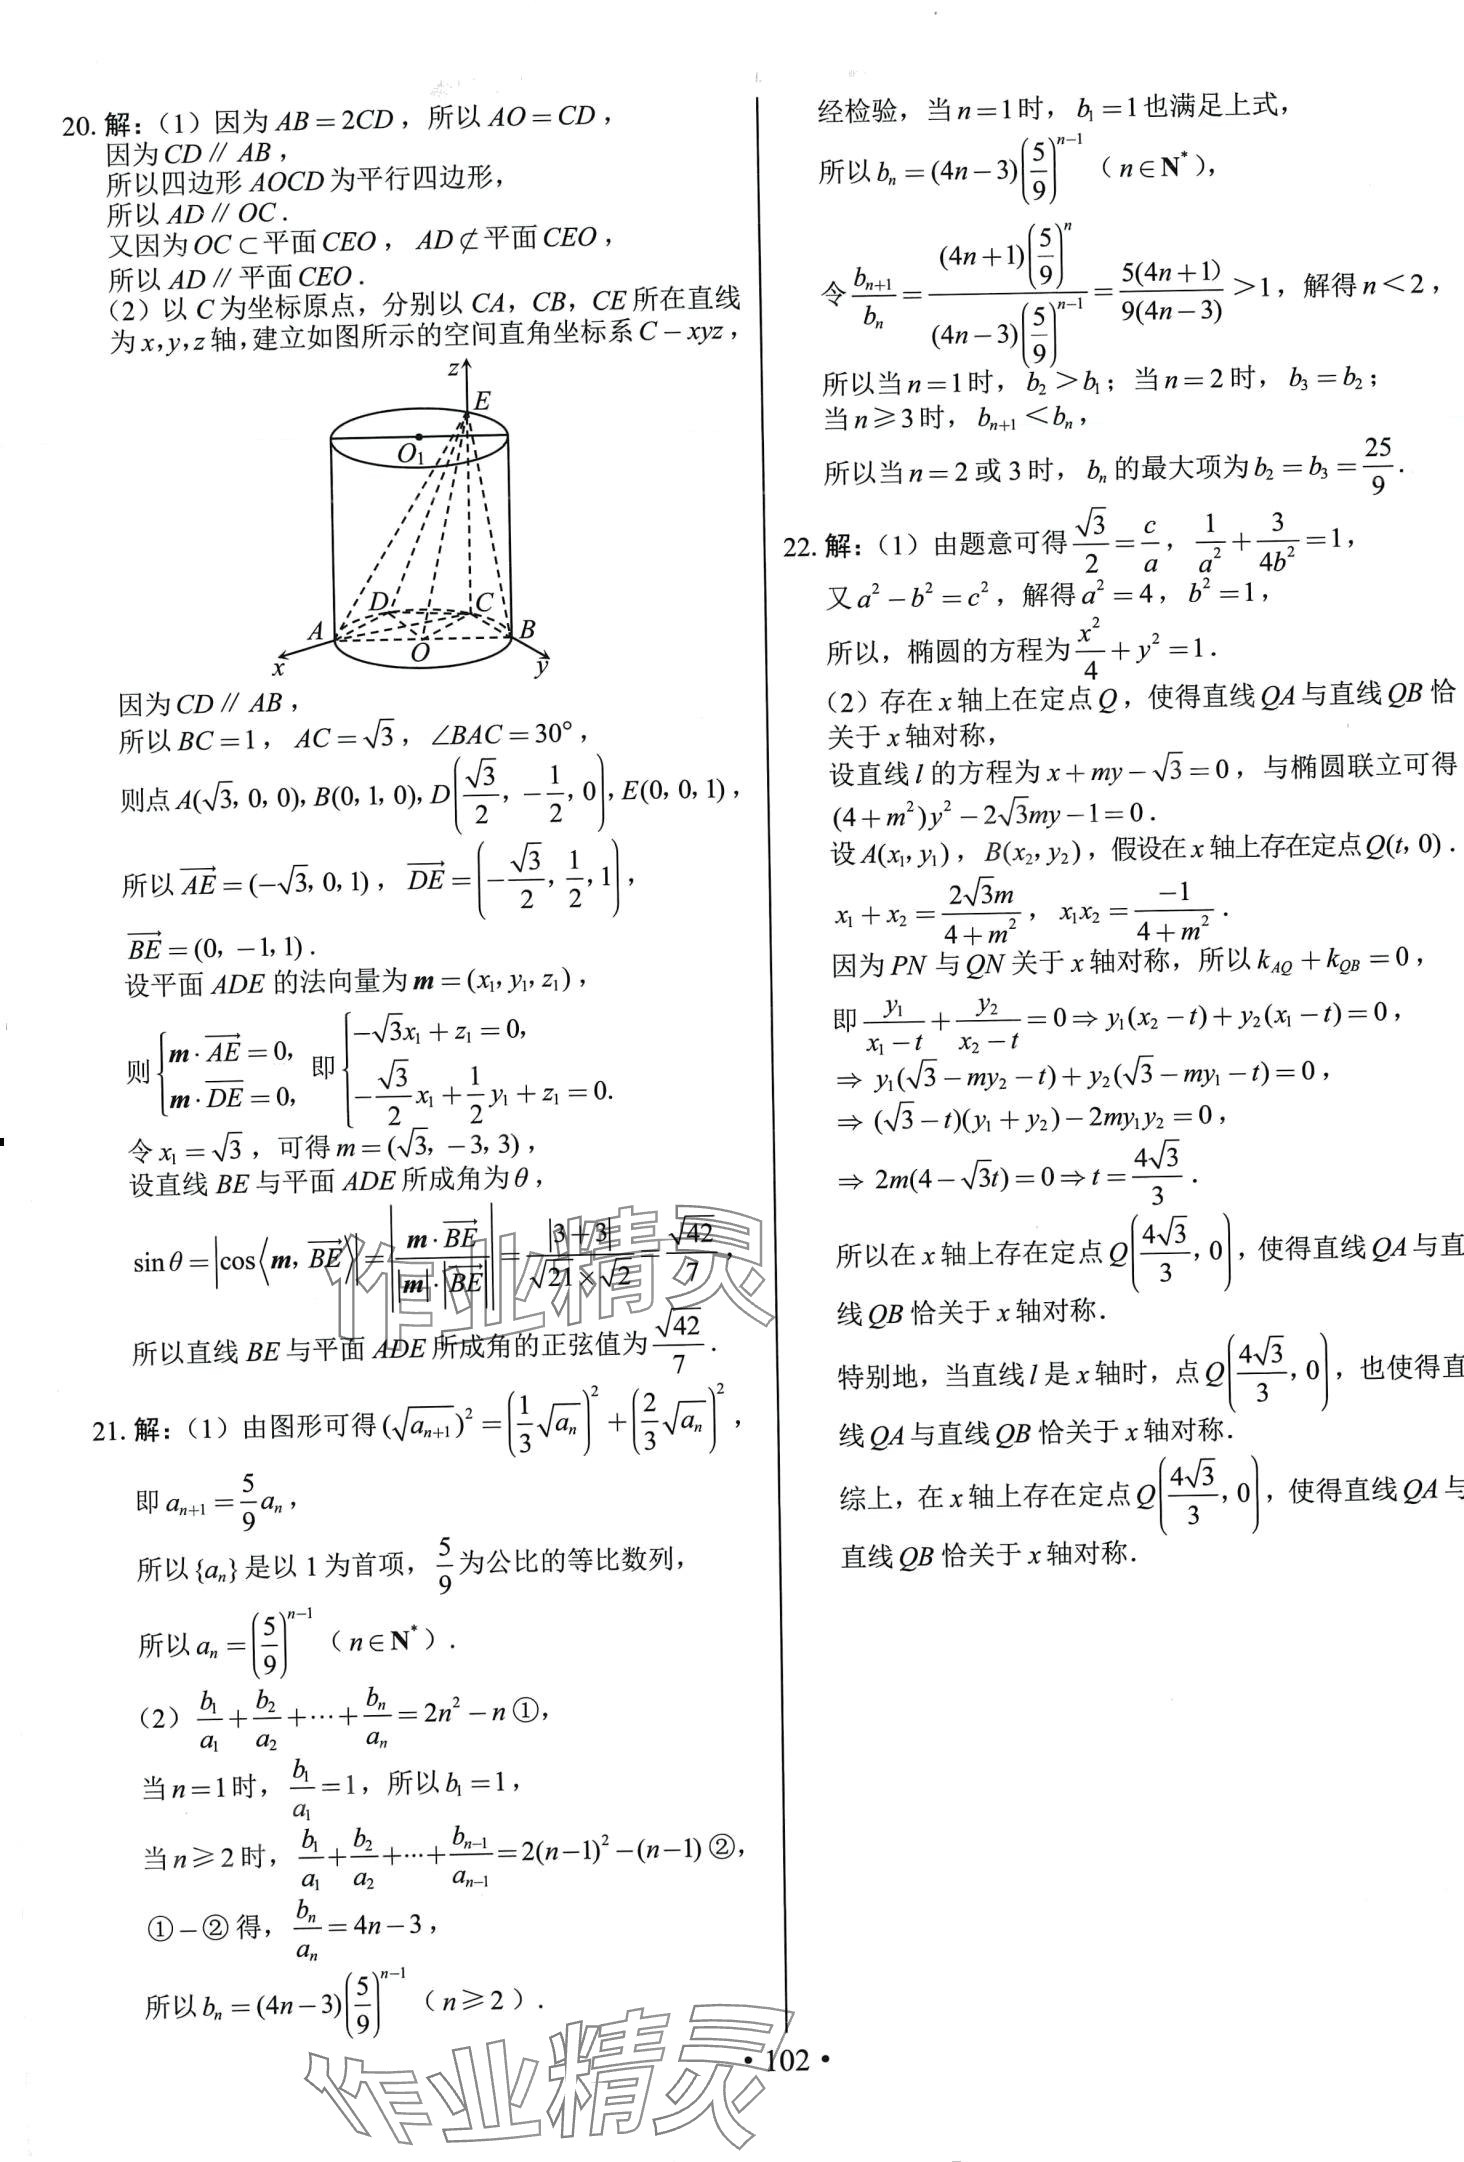 20. 解：（1）因为 AB＝2CD，所以 AO＝CD，
因为 CD∥AB，
所以四边形 AOCD 为平行四边形，
所以 AD∥OC．
又因为 OC⊂平面 CEO，AD⊄平面 CEO，
所以 AD∥平面 CEO．
（2）以 C 为坐标原点，分别以 CA，CB，CE 所在直线
为 x,y,z 轴，建立如图所示的空间直角坐标系 C－xyz，
z
E
O₁
D
C
A
B
O
x
y
因为 CD∥AB，
所以 BC＝1，AC＝√3，∠BAC＝30°，
则点 A(√3, 0, 0), B(0, 1, 0), D(√3/2, －1/2, 0), E(0, 0, 1)，
所以 AE→＝(－√3, 0, 1)，DE→＝(－√3/2, 1/2, 1)，
BE→＝(0, －1, 1)．
设平面 ADE 的法向量为 m＝(x₁, y₁, z₁)，
则 {m·AE→＝0, m·DE→＝0, 即 {－√3x₁＋z₁＝0, －(√3/2)x₁＋(1/2)y₁＋z₁＝0.
令 x₁＝√3，可得 m＝(√3, －3, 3)，
设直线 BE 与平面 ADE 所成角为 θ，
sinθ＝|cos⟨m, BE→⟩|＝|(m·BE→)/(|m|·|BE→|)|＝|3＋3|/(√21×√2)＝√42/7，
所以直线 BE 与平面 ADE 所成角的正弦值为 √42/7．
21. 解：（1）由图形可得 (√aₙ₊₁)²＝((1/3)√aₙ)²＋((2/3)√aₙ)²，
即 aₙ₊₁＝(5/9)aₙ，
所以 {aₙ} 是以 1 为首项，5/9 为公比的等比数列，
所以 aₙ＝(5/9)ⁿ⁻¹（n∈N*）．
（2）b₁/a₁＋b₂/a₂＋···＋bₙ/aₙ＝2n²－n ①，
当 n＝1 时，b₁/a₁＝1，所以 b₁＝1，
当 n≥2 时，b₁/a₁＋b₂/a₂＋···＋bₙ₋₁/aₙ₋₁＝2(n－1)²－(n－1) ②，
①－② 得，bₙ/aₙ＝4n－3，
所以 bₙ＝(4n－3)(5/9)ⁿ⁻¹（n≥2）．
经检验，当 n＝1 时，b₁＝1 也满足上式，
所以 bₙ＝(4n－3)(5/9)ⁿ⁻¹（n∈N*），
令 bₙ₊₁/bₙ＝((4n＋1)(5/9)ⁿ)/((4n－3)(5/9)ⁿ⁻¹)＝5(4n＋1)/9(4n－3)＞1，解得 n＜2，
所以当 n＝1 时，b₂＞b₁；当 n＝2 时，b₃＝b₂；
当 n≥3 时，bₙ₊₁＜bₙ，
所以当 n＝2 或 3 时，bₙ 的最大项为 b₂＝b₃＝25/9．
22. 解：（1）由题意可得 √3/2＝c/a，1/a²＋3/4b²＝1，
又 a²－b²＝c²，解得 a²＝4，b²＝1，
所以，椭圆的方程为 x²/4＋y²＝1．
（2）存在 x 轴上在定点 Q，使得直线 QA 与直线 QB 恰
关于 x 轴对称，
设直线 l 的方程为 x＋my－√3＝0，与椭圆联立可得
(4＋m²)y²－2√3my－1＝0．
设 A(x₁, y₁)，B(x₂, y₂)，假设在 x 轴上存在定点 Q(t, 0)．
x₁＋x₂＝2√3m/(4＋m²)，x₁x₂＝－1/(4＋m²)．
因为 PN 与 QN 关于 x 轴对称，所以 k_AQ＋k_QB＝0，
即 y₁/(x₁－t)＋y₂/(x₂－t)＝0⇒y₁(x₂－t)＋y₂(x₁－t)＝0，
⇒ y₁(√3－my₂－t)＋y₂(√3－my₁－t)＝0，
⇒ (√3－t)(y₁＋y₂)－2my₁y₂＝0，
⇒ 2m(4－√3t)＝0⇒t＝4√3/3．
所以在 x 轴上存在定点 Q(4√3/3, 0)，使得直线 QA 与直
线 QB 恰关于 x 轴对称．
特别地，当直线 l 是 x 轴时，点 Q(4√3/3, 0)，也使得直
线 QA 与直线 QB 恰关于 x 轴对称．
综上，在 x 轴上存在定点 Q(4√3/3, 0)，使得直线 QA 与
直线 QB 恰关于 x 轴对称．
·102·
作业精灵
作业精灵